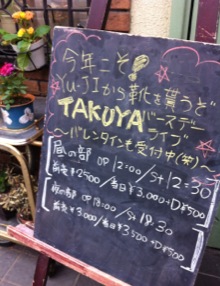 今年こそ!
Yu-JIから靴を貰うぞ
TAKUYAバースデー
ライブ
〜バレンタインも受付中(笑)〜
昼の部 OP 12:00/St 12:30
前売¥2500/当日¥3,000+D¥500
夜の部 OP 18:00/St 18:30
前売¥3,000/当日¥3,500+D¥500